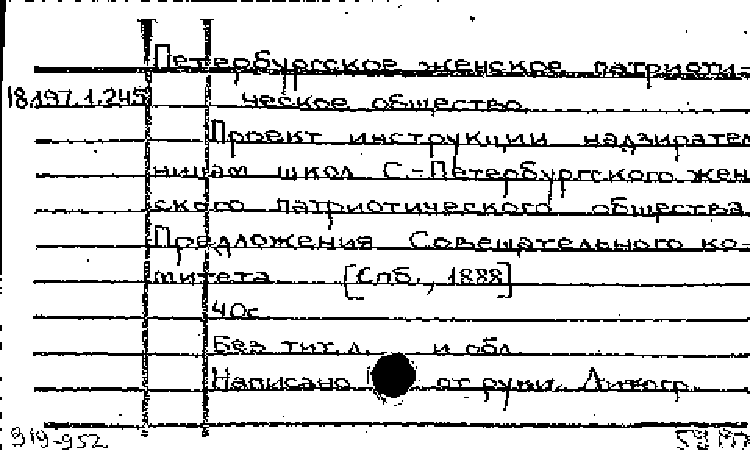 Петербургское женское патриоти-
18.197.1.245 ческое общество.
Проект инструкции надзирател
ницам школ С.-Петербургского жен
ского патриотического общества.
Предложения Совещательного ко-
митета [Спб., 1888]
40с
Без тит. л. и обл.
Написано от руки. Литогр.
319-952